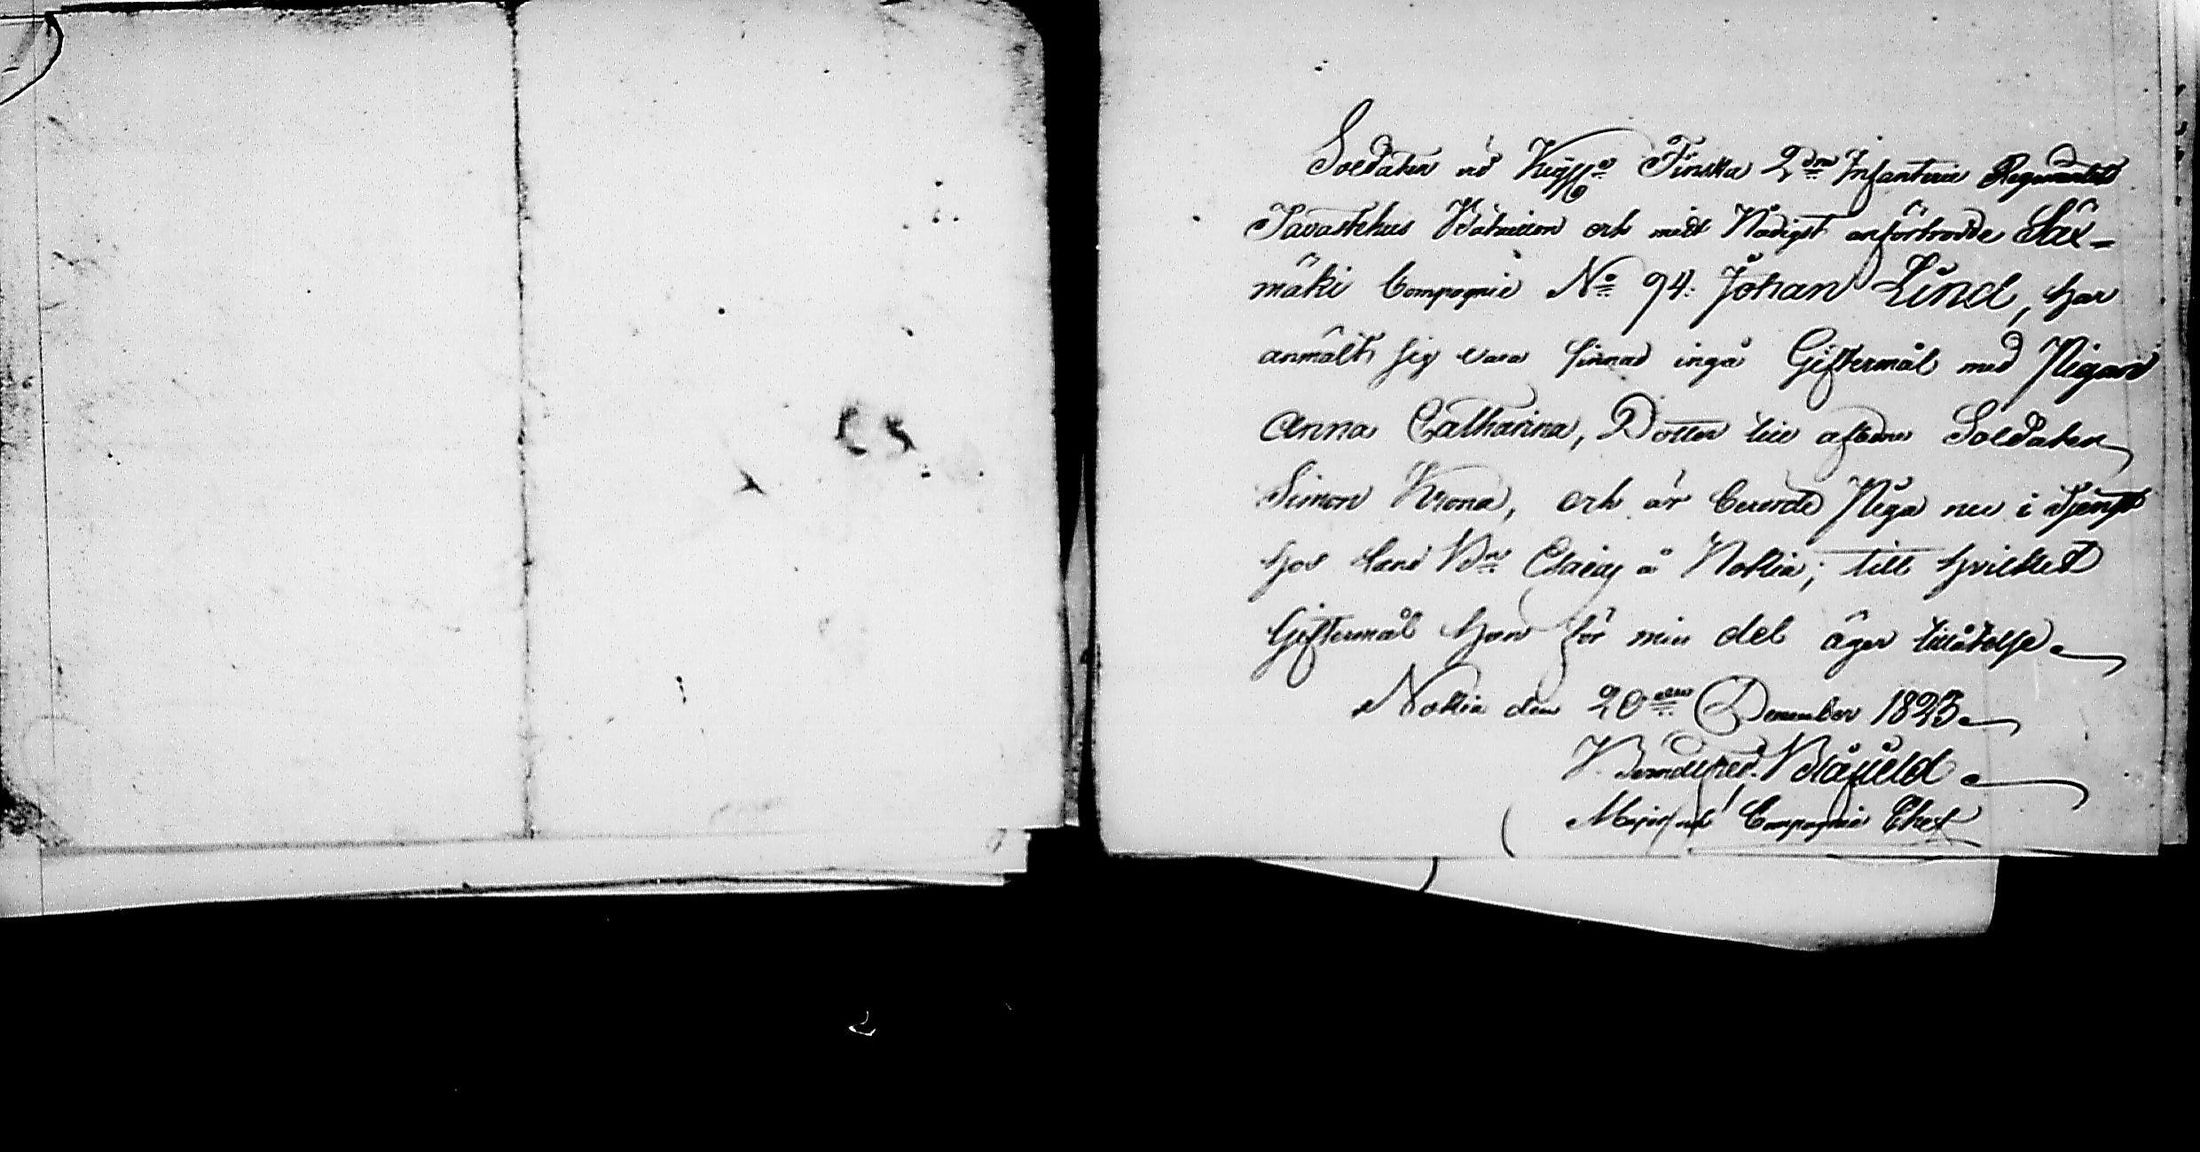 Soldaten vid Finska 2dra Infanterie Regementets
Tavastehus Bataillon och mitt Nådigst anförtrodde Säx-
mäki Compagnie No 94. Johan Lind, har
anmält sig vara sinnad ingå Giftermål med Pigan
Anna Catharina, Dotter till afledne Soldaten
Simon Krona, och är berörde Piga nu i tjenst
hos å Nokia; till hvilket
Giftermål han för min del äger tillåtelse.
Nokia den 20 December 1823.
Blåfield
Major och Compagnie Chef